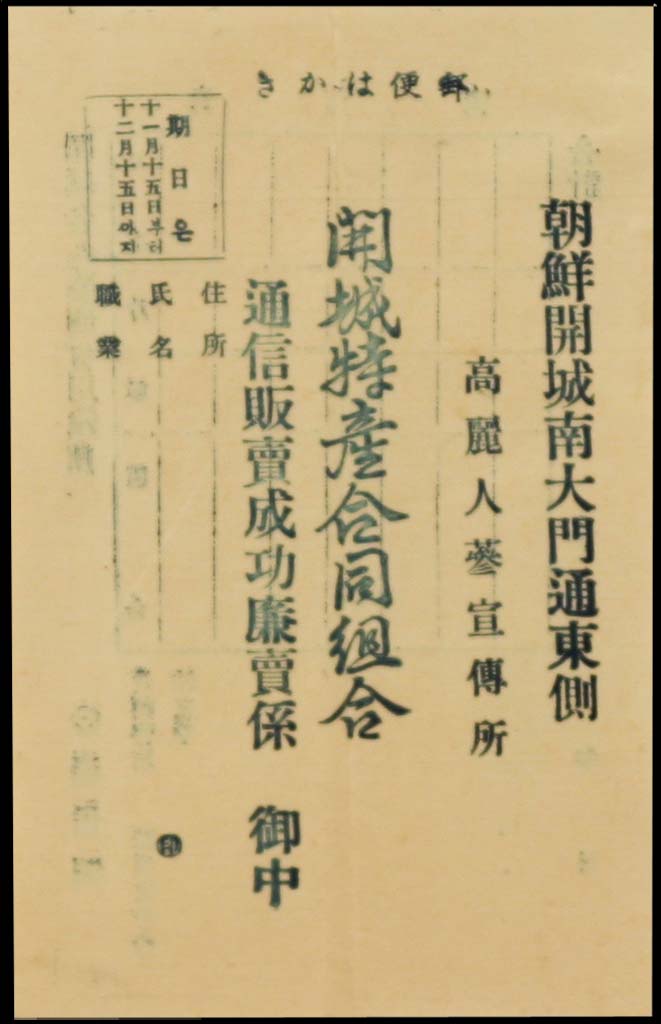 郵便はかき
朝鮮開城南大門通東側
高麗人蔘宣傳所
開城特產合同組合
通信販賣成功廉賣係 御中
住所
氏名
職業
印
期日은
十一月十五日부터
十二月十五日까지